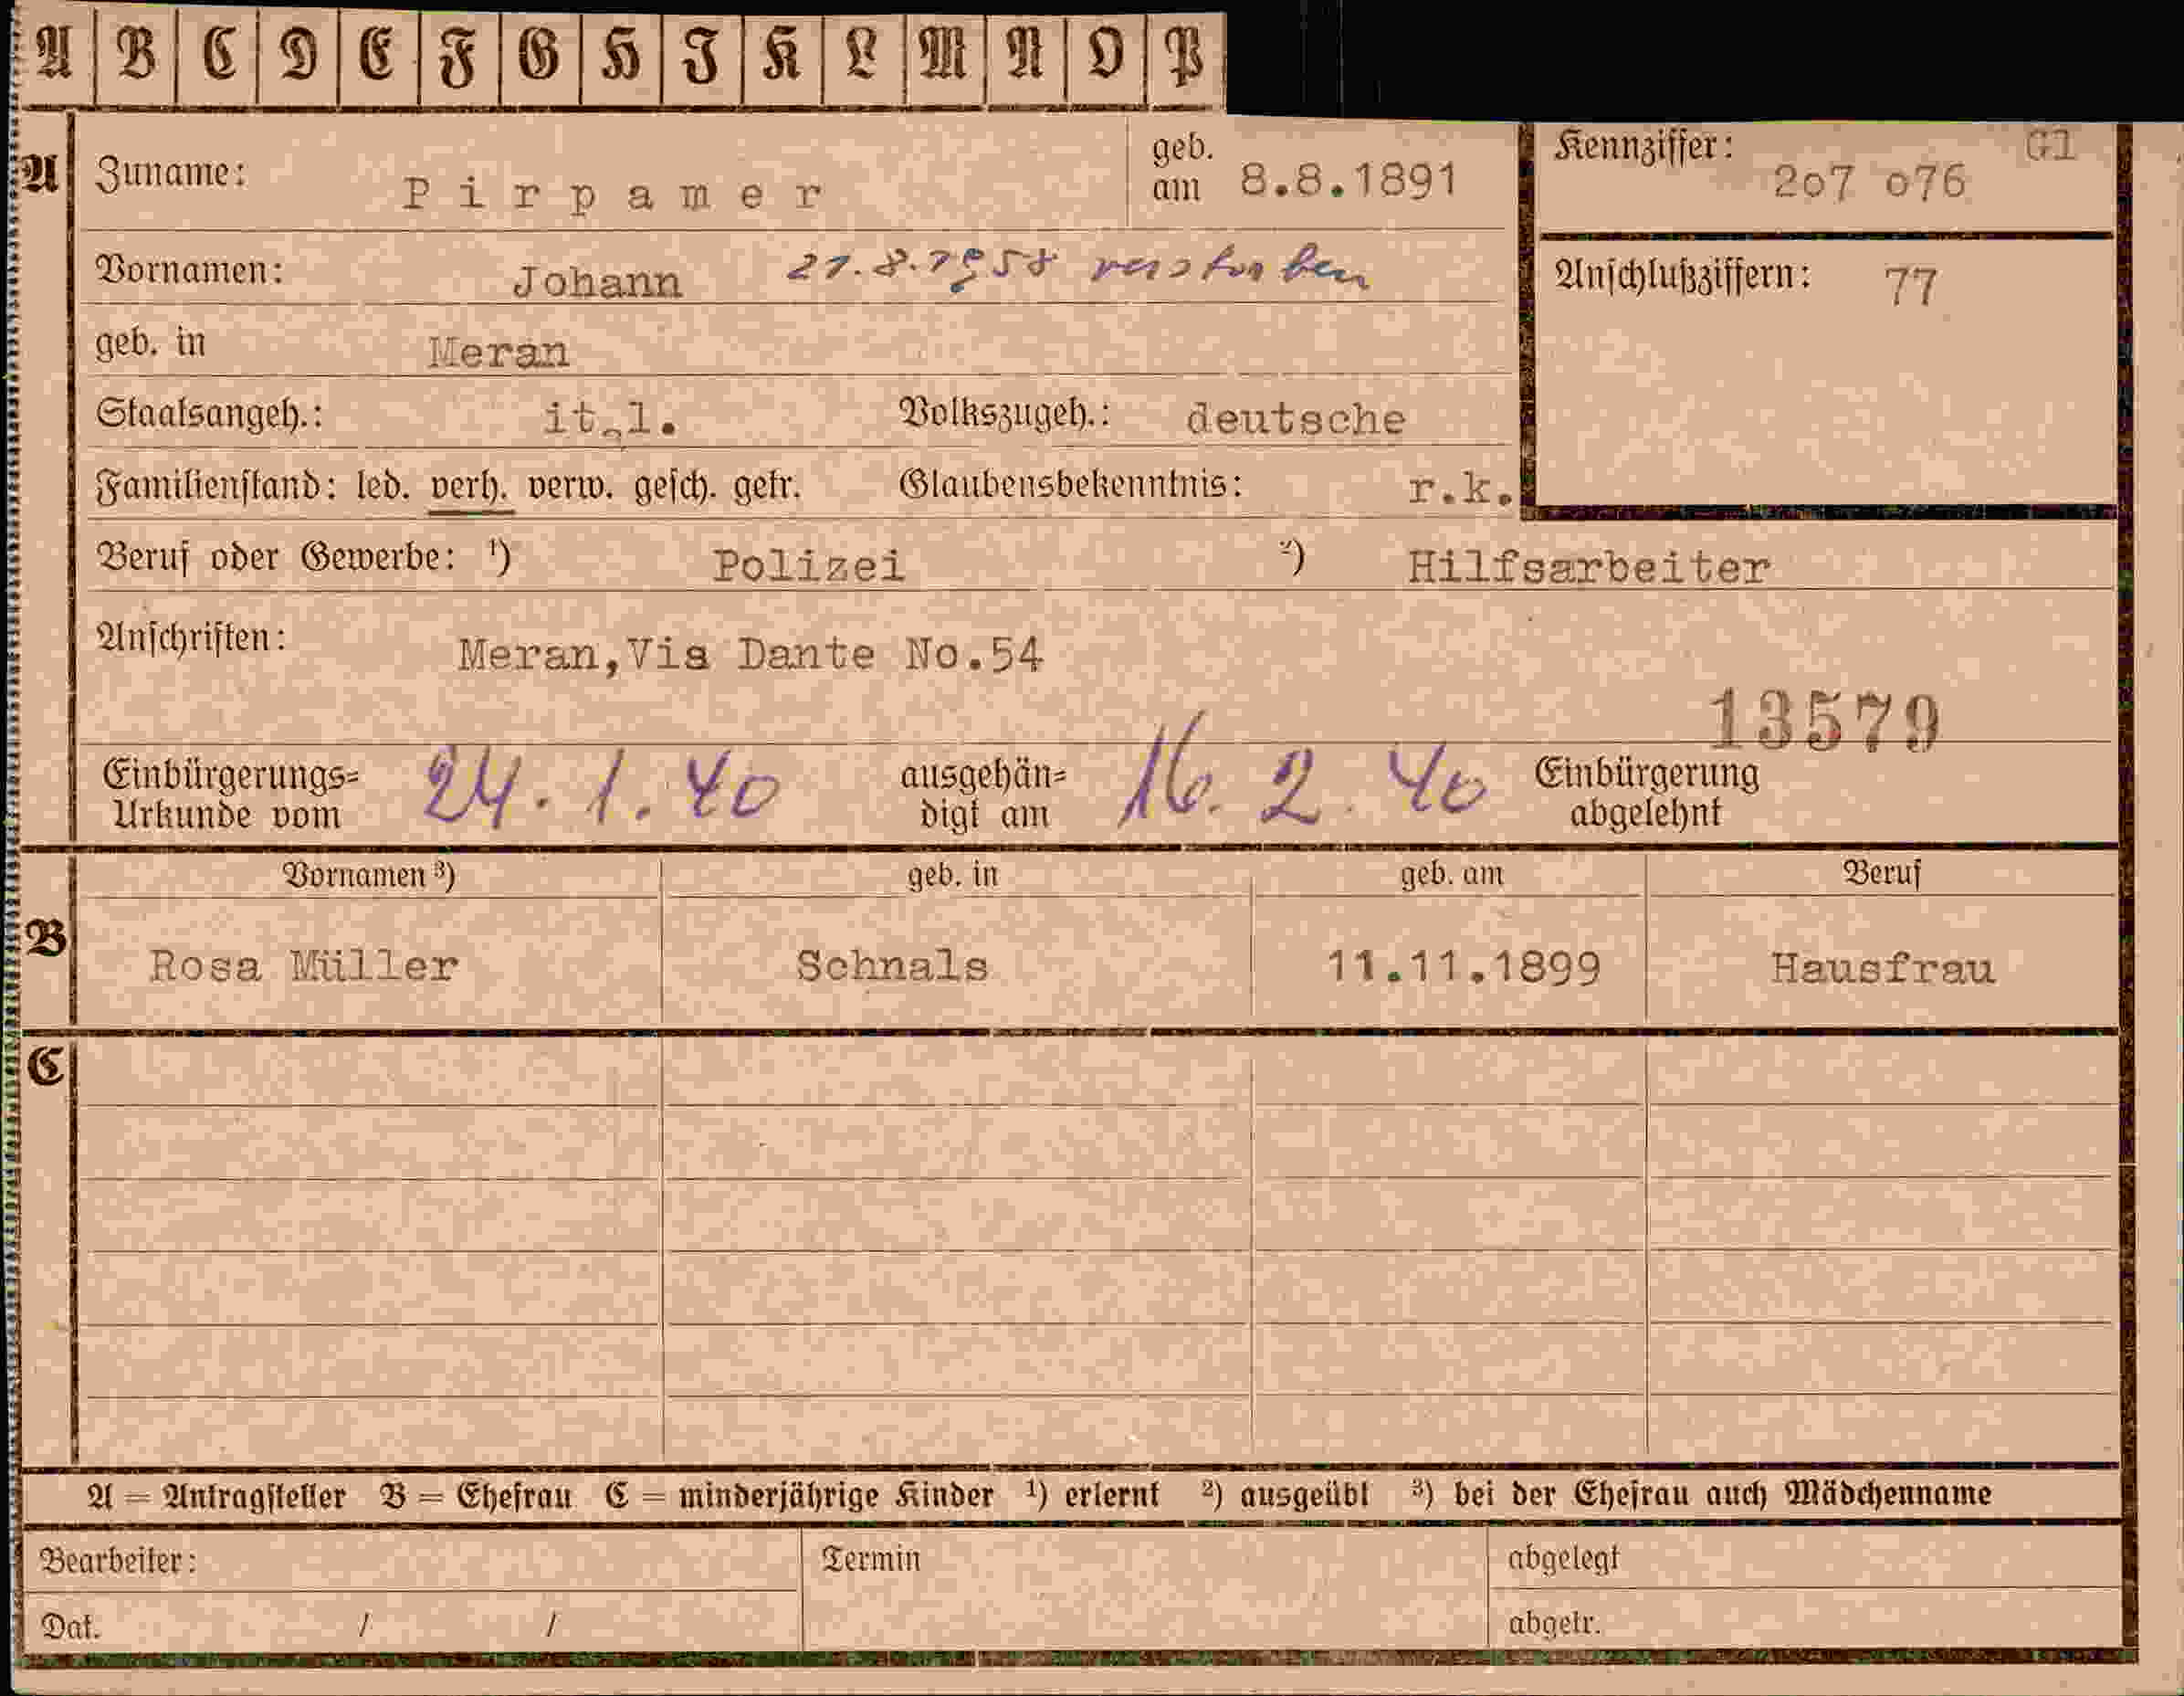 A B C D E F G H J K L M N O P
A Zuname: Pirpamer geb. am 8.8.1891 Kennziffer: 2o7 o76 Gl
Vornamen: Johann 21.8.1958 verstorben Anschlußziffern: 77
geb. in Meran
Staatsangeh.: ital. Volkszugeh.: deutsche
Familienstand: led. verh. verw. gesch. getr. Glaubensbekenntnis: r.k.
Beruf oder Gewerbe: ¹) Polizei ²) Hilfsarbeiter
Anschriften: Meran,Via Dante No.54
13579
Einbürgerungs= Urkunde vom 24.1.40 ausgehän= digt am 16.2.40 Einbürgerung abgelehnt
Vornamen ³) geb. in geb. am Beruf
B Rosa Müller Schnals 11.11.1899 Hausfrau
C
A = Antragsteller B = Ehefrau C = minderjährige Kinder ¹) erlernt ²) ausgeübt ³) bei der Ehefrau auch Mädchenname
Bearbeiter: Termin abgelegt
Dat. / / abgetr.